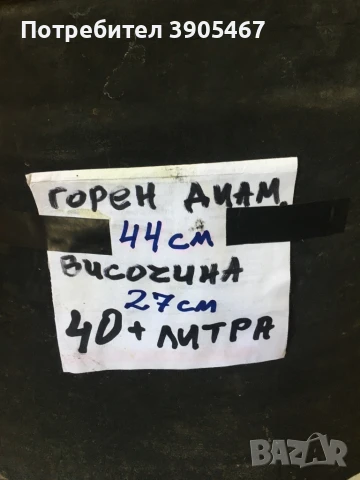 Потребител 3905467
ГОРЕН ДИАМ.
44 см
ВИСОЧИНА
27 см
40 + ЛИТРА
BAZAR